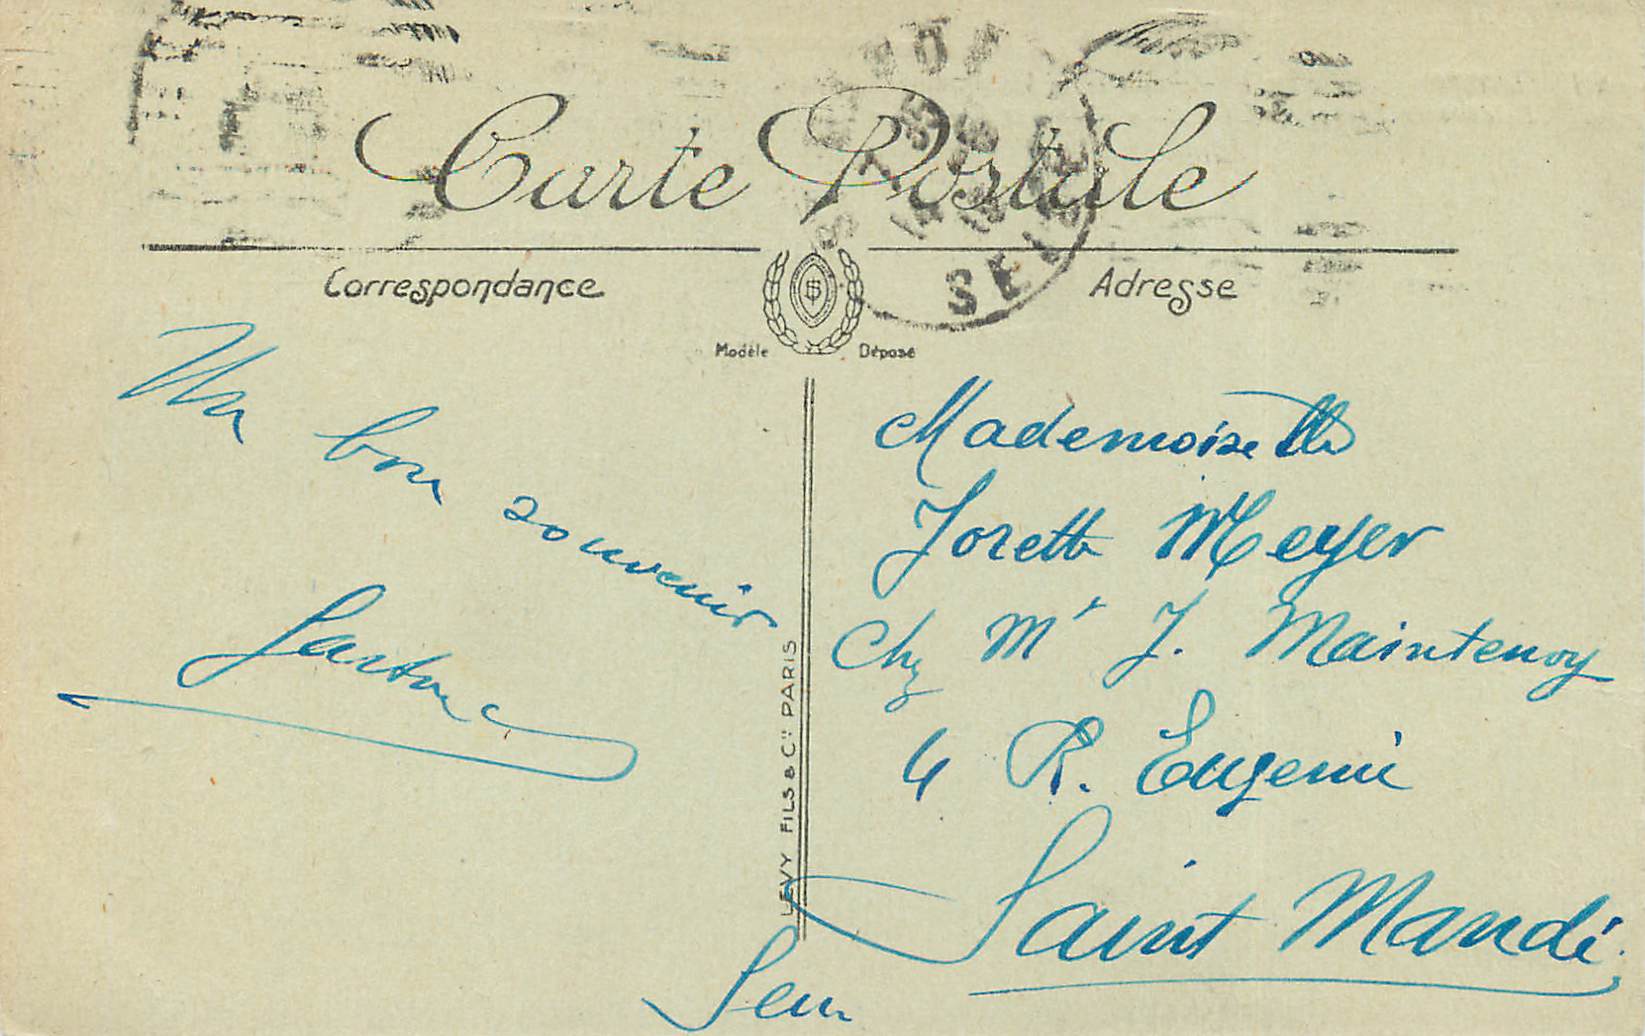 Carte Postale
Correspondance
Adresse
Modèle Déposé
SEINE
Un bon souvenir
Gastone
Mademoiselle
Josette Meyer
Chz Mr J. Maintenoy
4 R. Eugenie
Saint Mandé
Seine
LEVY FILS & Cie PARIS